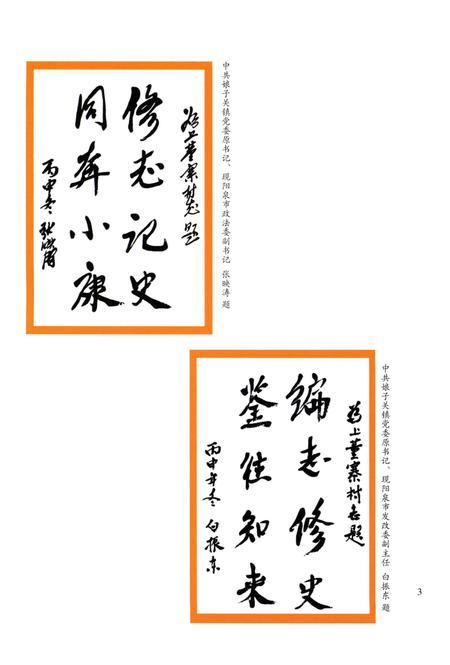 为上董寨村志题
修志记史
同奔小康
丙申冬 张映涛
中共娘子关镇党委原书记、现阳泉市政法委副书记 张映涛 题
为上董寨村志题
编志修史
鉴往知来
丙申年冬 白振东
中共娘子关镇党委原书记、现阳泉市发改委副主任 白振东 题
3